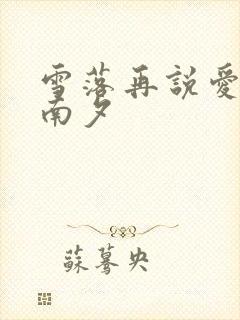 雪落再説愛
南夕
蘇驀央